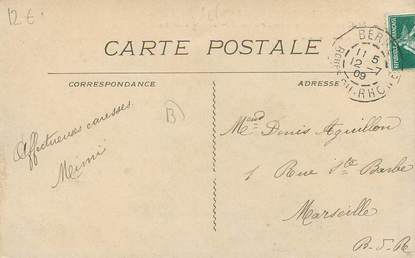 12 €
CARTE POSTALE
CORRESPONDANCE
ADRESSE
BER
11 5
12 -7
09
B)
Affectueuses caresses.
Mimi
Denis Aguillon
1 Rue Ste Barbe
Marseille.
B-d-R